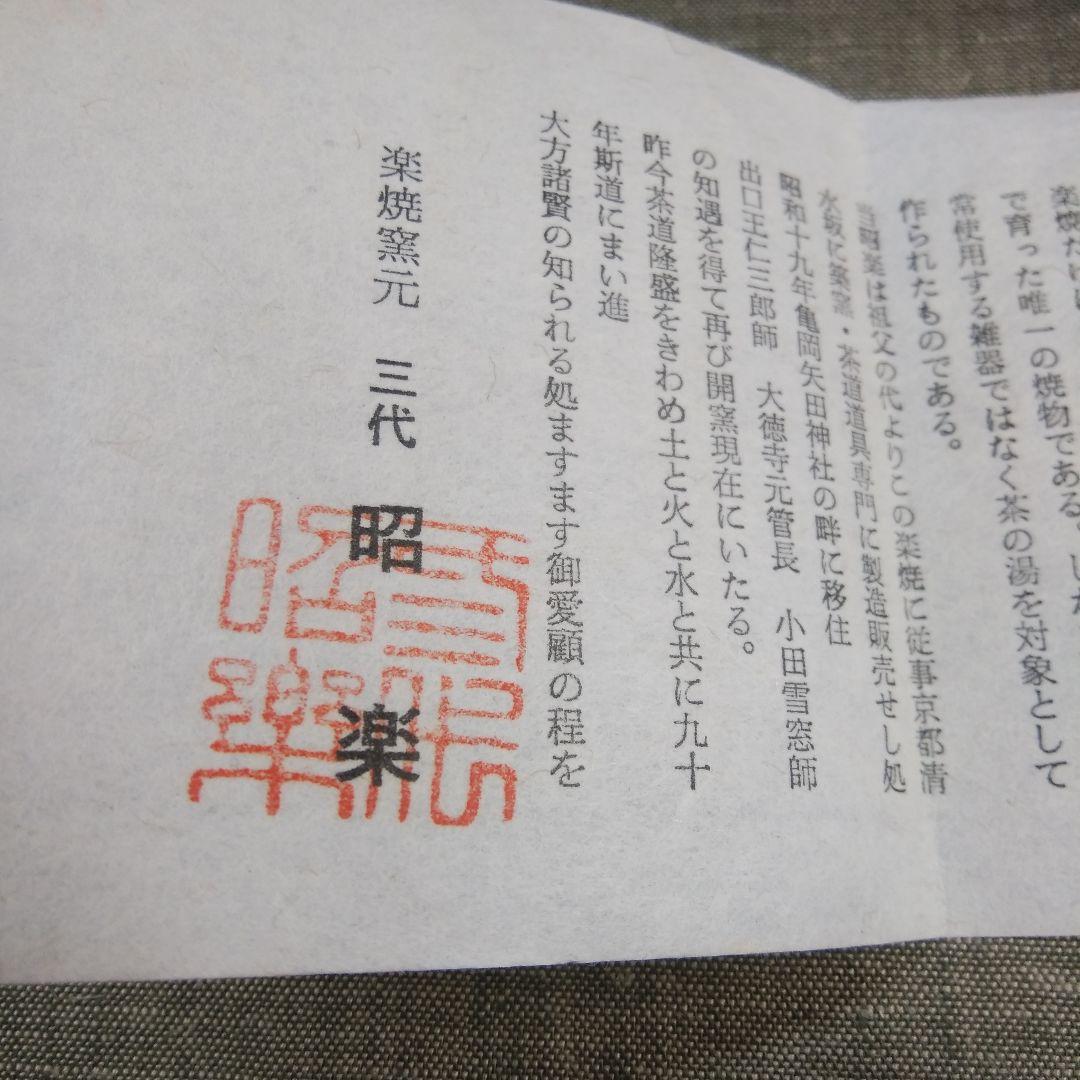 で育った唯一の焼物である。
常使用する雑器ではなく茶の湯を対象として
作られたものである。
当昭楽は祖父の代よりこの楽焼に従事京都清
水坂に築窯・茶道道具専門に製造販売せし処
昭和十九年亀岡矢田神社の畔に移住
出口王仁三郎師　大徳寺元管長　小田雪窓師
の知遇を得て再び開窯現在にいたる。
昨今茶道隆盛をきわめ土と火と水と共に九十
年斯道にまい進
大方諸賢の知られる処ますます御愛顧の程を
楽焼窯元　三代　昭楽